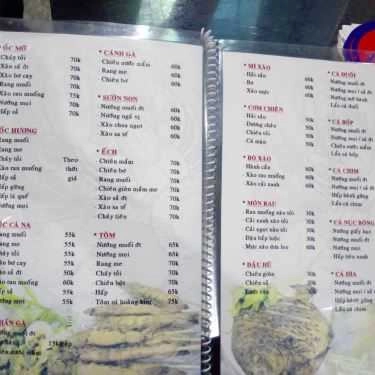 ỐC MỠ
Cháy tỏi 70k
Xào sả ớt 70k
Xào bơ cay 70k
Rang muối 70k
Xào rau muống 75k
Nướng mọi 70k
Hấp sả 70k
Rang muối
Rang me
Cháy tỏi Theo
Xào rau muống thời
Hấp sả giá
Hấp gừng
Hấp lá quế
Nướng mọi
ỐC CÀ NA
Rang muối 55k
Rang me 55k
Cháy tỏi 55k
Xào bơ cay 55k
Xào sả ớt 55k
Xào rau muống 60k
Hấp sả 55k
Nướng mọi 55k
CHÂN GÀ
Nướng muối ớt
Rang muối
* CÁNH GÀ
Chiên nước mắm 60k
Rang me 60k
Chiên bơ 60k
* SƯỜN NON
Nướng muối ớt 70k
Nướng ngũ vị 70k
Xào chua ngọt 70k
Xào sa tế 70k
* ẾCH
Chiên mắm 70k
Chiên bơ 70k
Rang muối 70k
Chiên giòn mắm me 70k
Xào sa tế 70k
Nướng muối ớt 70k
Cháy tiêu 70k
* TÔM
Nướng muối ớt 65k
Nướng mọi 65k
Rang me 70k
Cháy tỏi 70k
Chiên bột 70k
Hấp 65k
Tôm tú hoàng kim 75k
* MÌ XÀO
Hải sản 60k
Bò 60k
Xào mực 60k
* CƠM CHIÊN
Hải sản 60k
Dương châu 50k
Chiên tỏi 40k
Cá mặn 50k
* ĐỒ XÀO
Hành cần 60k
Xào rau muống 60k
Xào cải xanh 60k
* MÓN RAU
Rau muống xào tỏi 40k
Cải xanh xào tỏi 40k
Cải ngọt xào tỏi 40k
Đậu bắp luộc 30k
Mực xào dưa leo 60k
* ĐẬU HŨ
Chiên giòn 30k
Chiên sả 30k
* CÁ ĐUỐI
Nướng muối ớt
Nướng mọi
Hấp hành gừng
Lẩu cá
* CÁ BỚP
Nướng muối ớt
Nướng mọi
Chiên nước mắm
Lẩu cá bớp
* CÁ CHIM
Nướng muối ớt
Nướng mọi
Hấp hành gừng
Lẩu cá chim
* CÁ NỤC BÔNG
Nướng giấy bạc
Nướng mọi
Hấp tiêu xanh
* CÁ DÌA
Nướng muối ớt
Nướng mọi
Hấp hành gừng
Lẩu cá chim